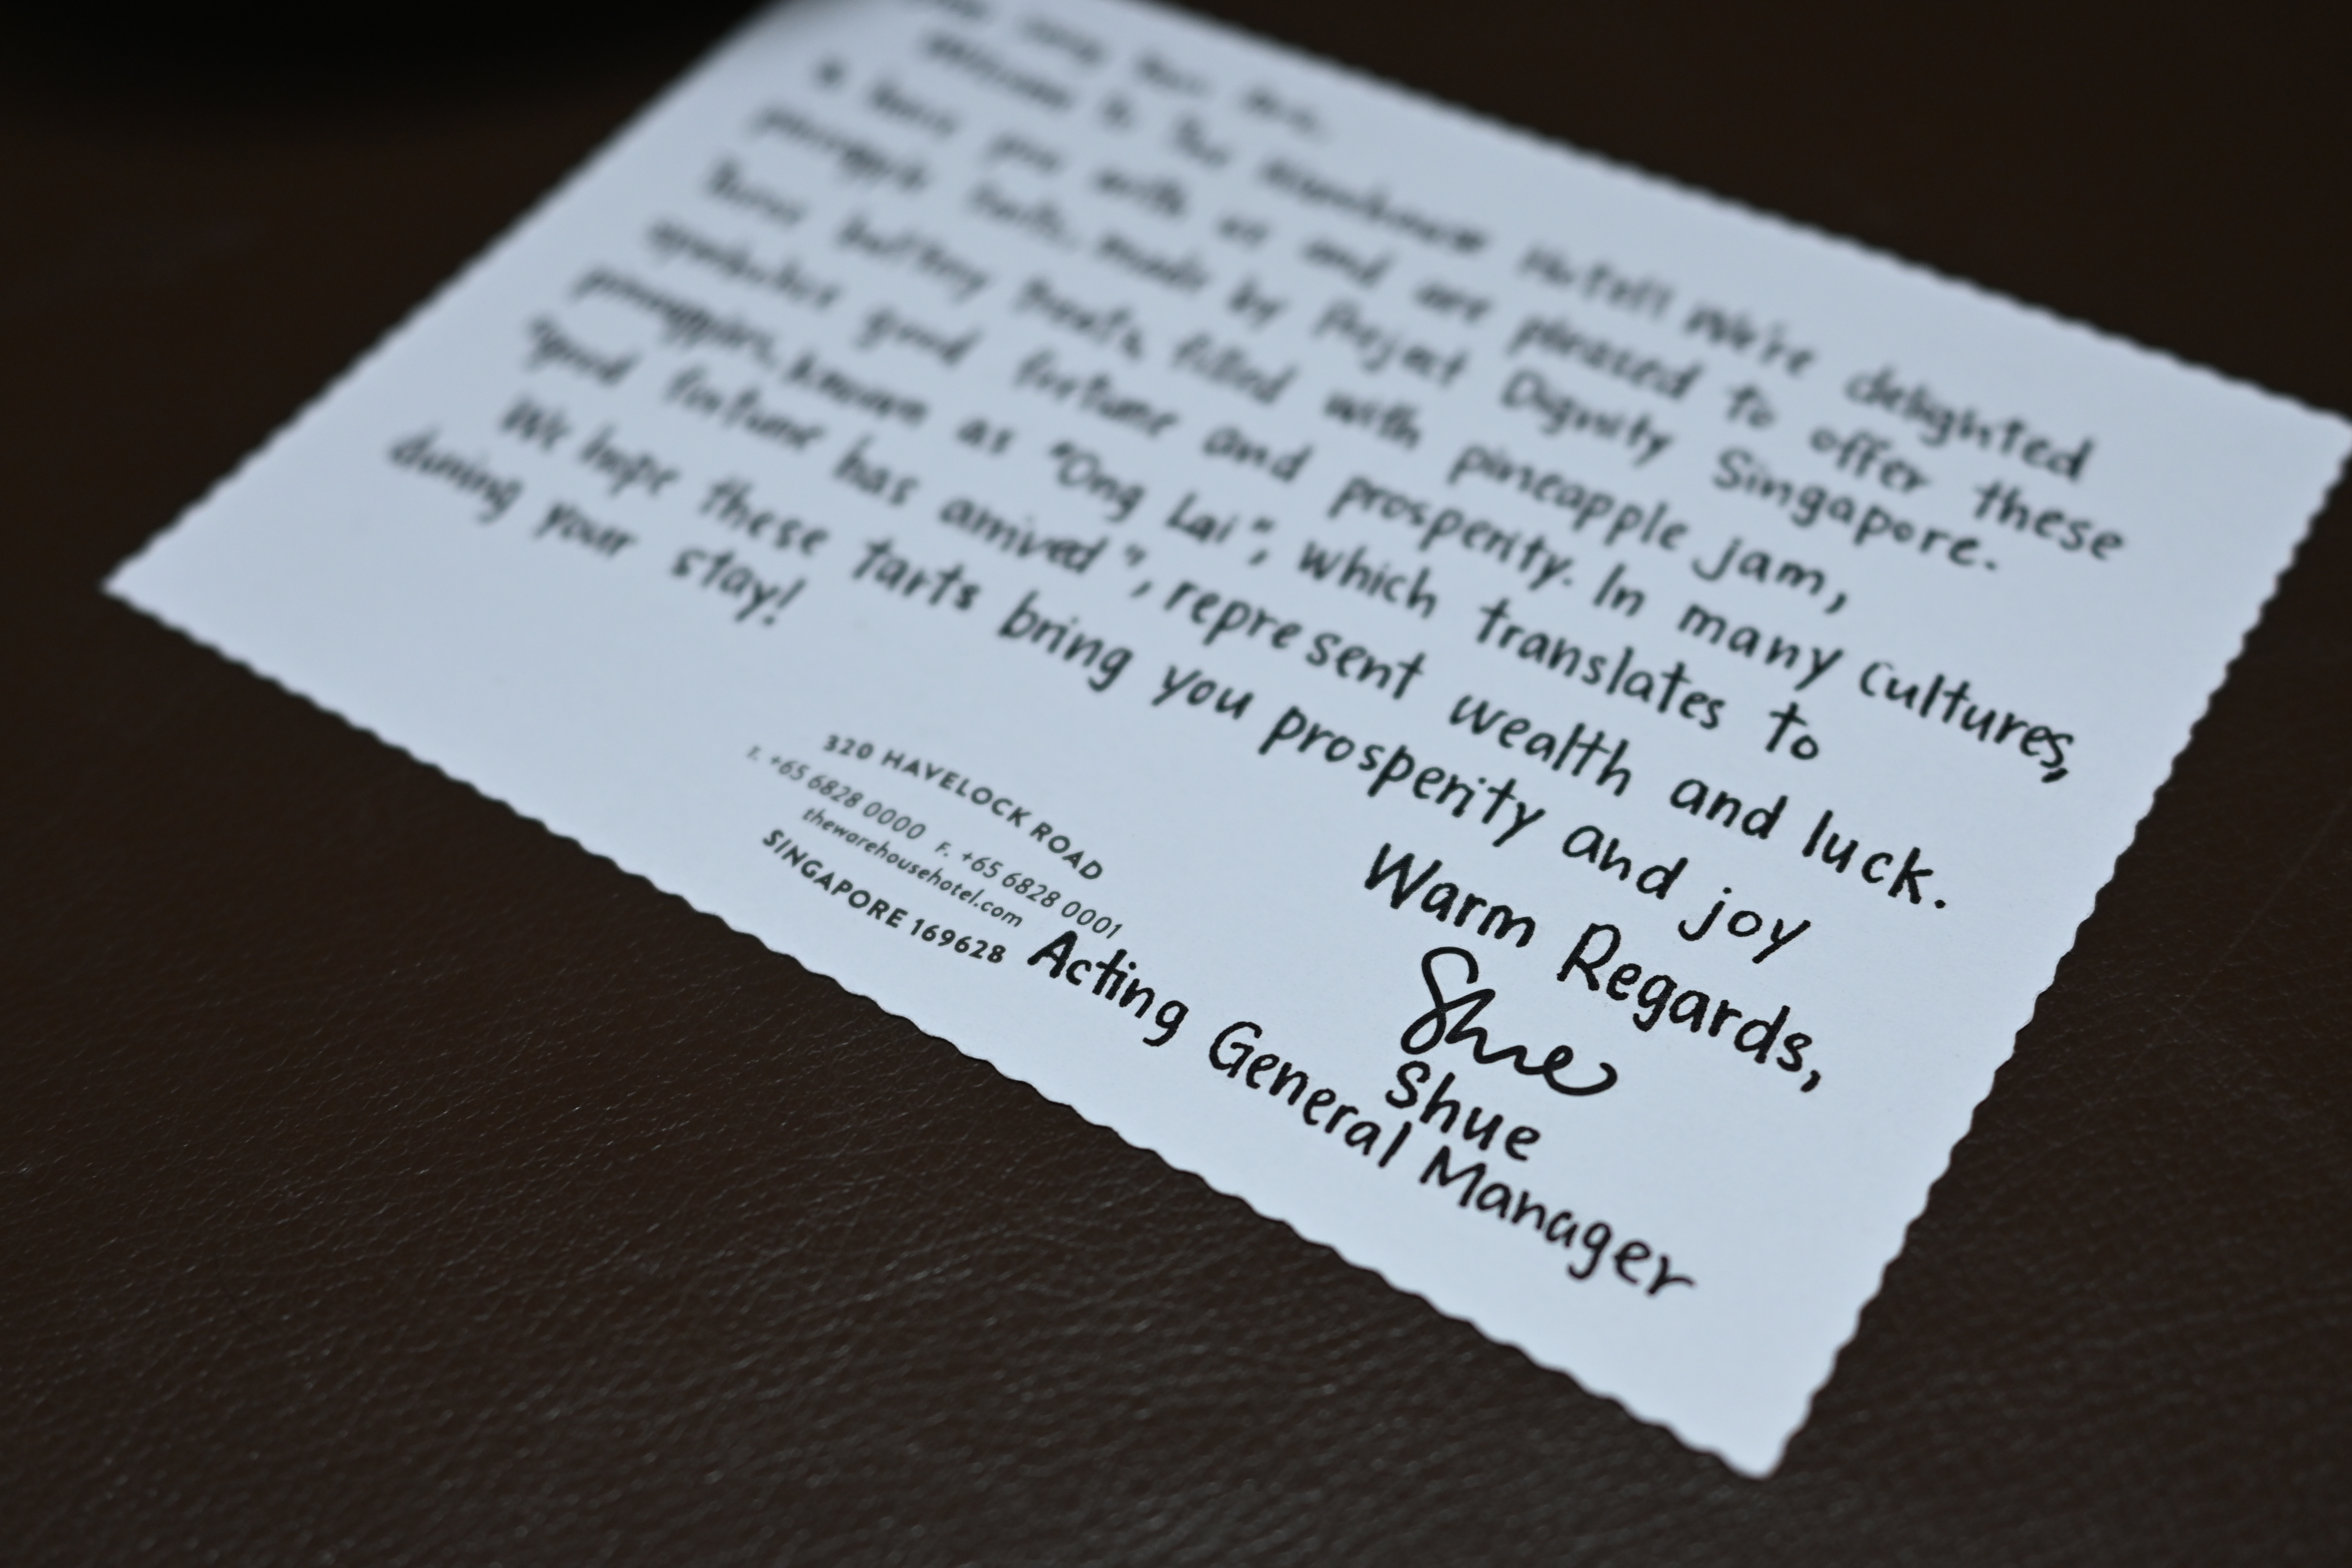 Welcome to The Warehouse Hotel! We're delighted
to have you with us and are pleased to offer these
pineapple tarts, made by Project Dignity Singapore.
These buttery treats, filled with pineapple jam,
symbolise good fortune and prosperity. In many cultures,
pineapples, known as "Ong Lai", which translates to
"good fortune has arrived", represent wealth and luck.
We hope these tarts bring you prosperity and joy
during your stay!
Warm Regards,
Shue
Shue
Acting General Manager
320 HAVELOCK ROAD
T. +65 6828 0000 F. +65 6828 0001
thewarehousehotel.com
SINGAPORE 169628